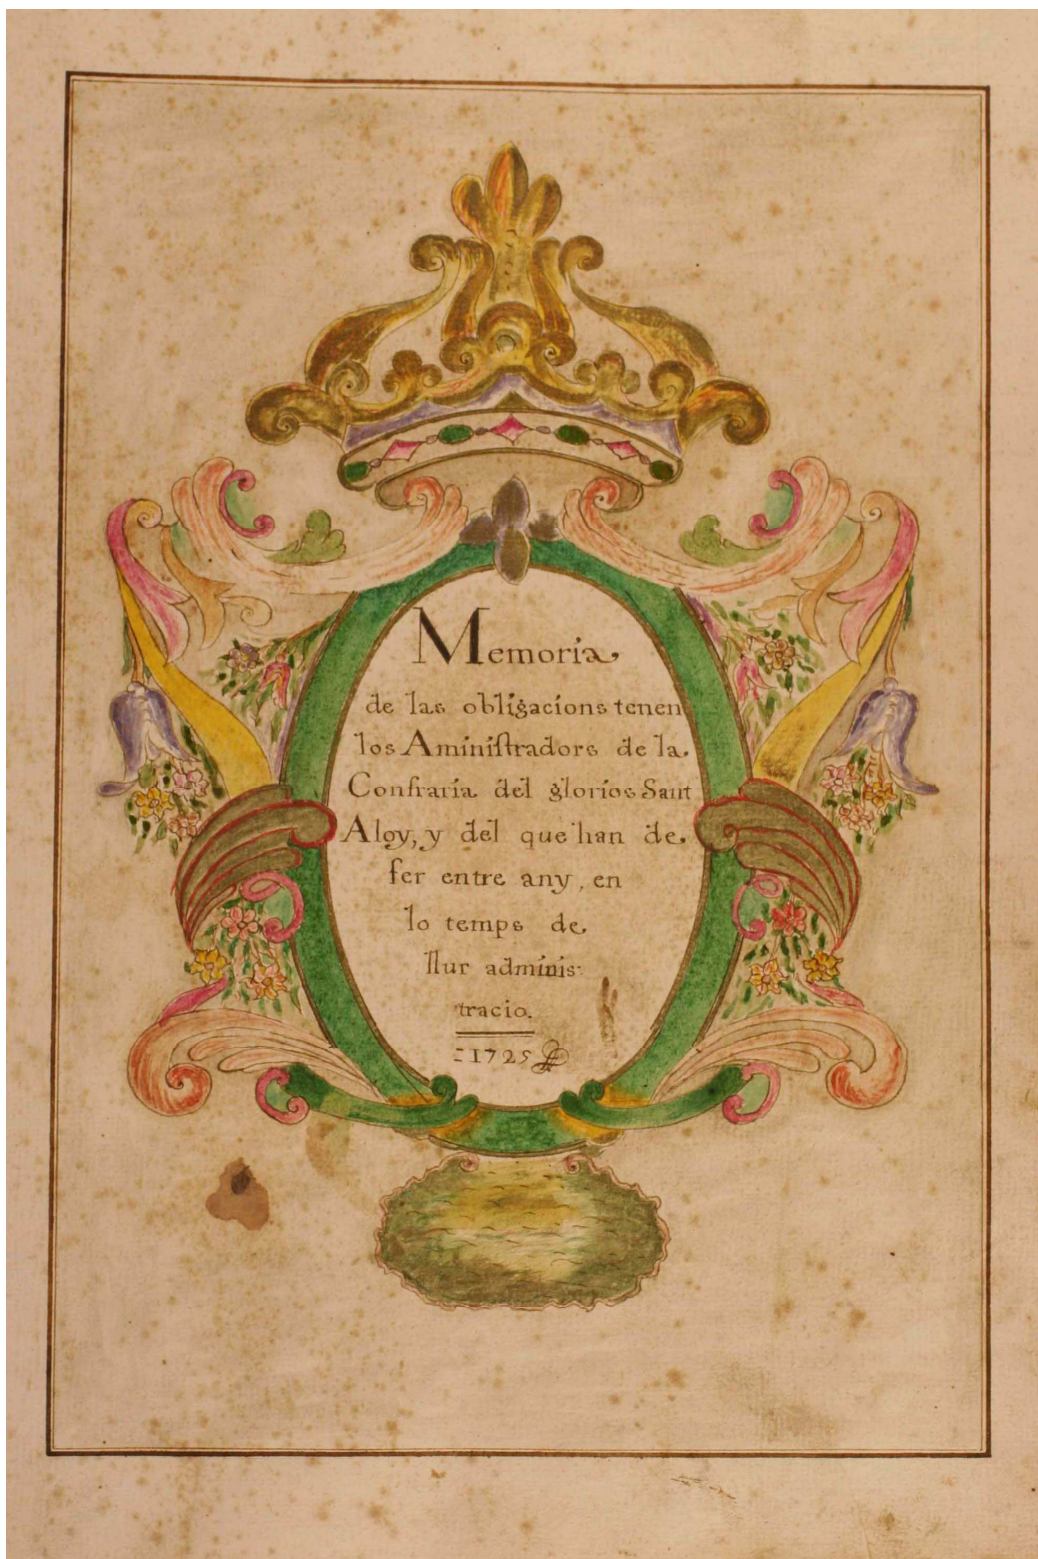 Memoria,
de las obligacions tenen
los Aministradors de la
Confraria del glorios Sant
Aloy, y del que han de
fer entre any, en
lo temps de
llur adminis-
tracio.
1725